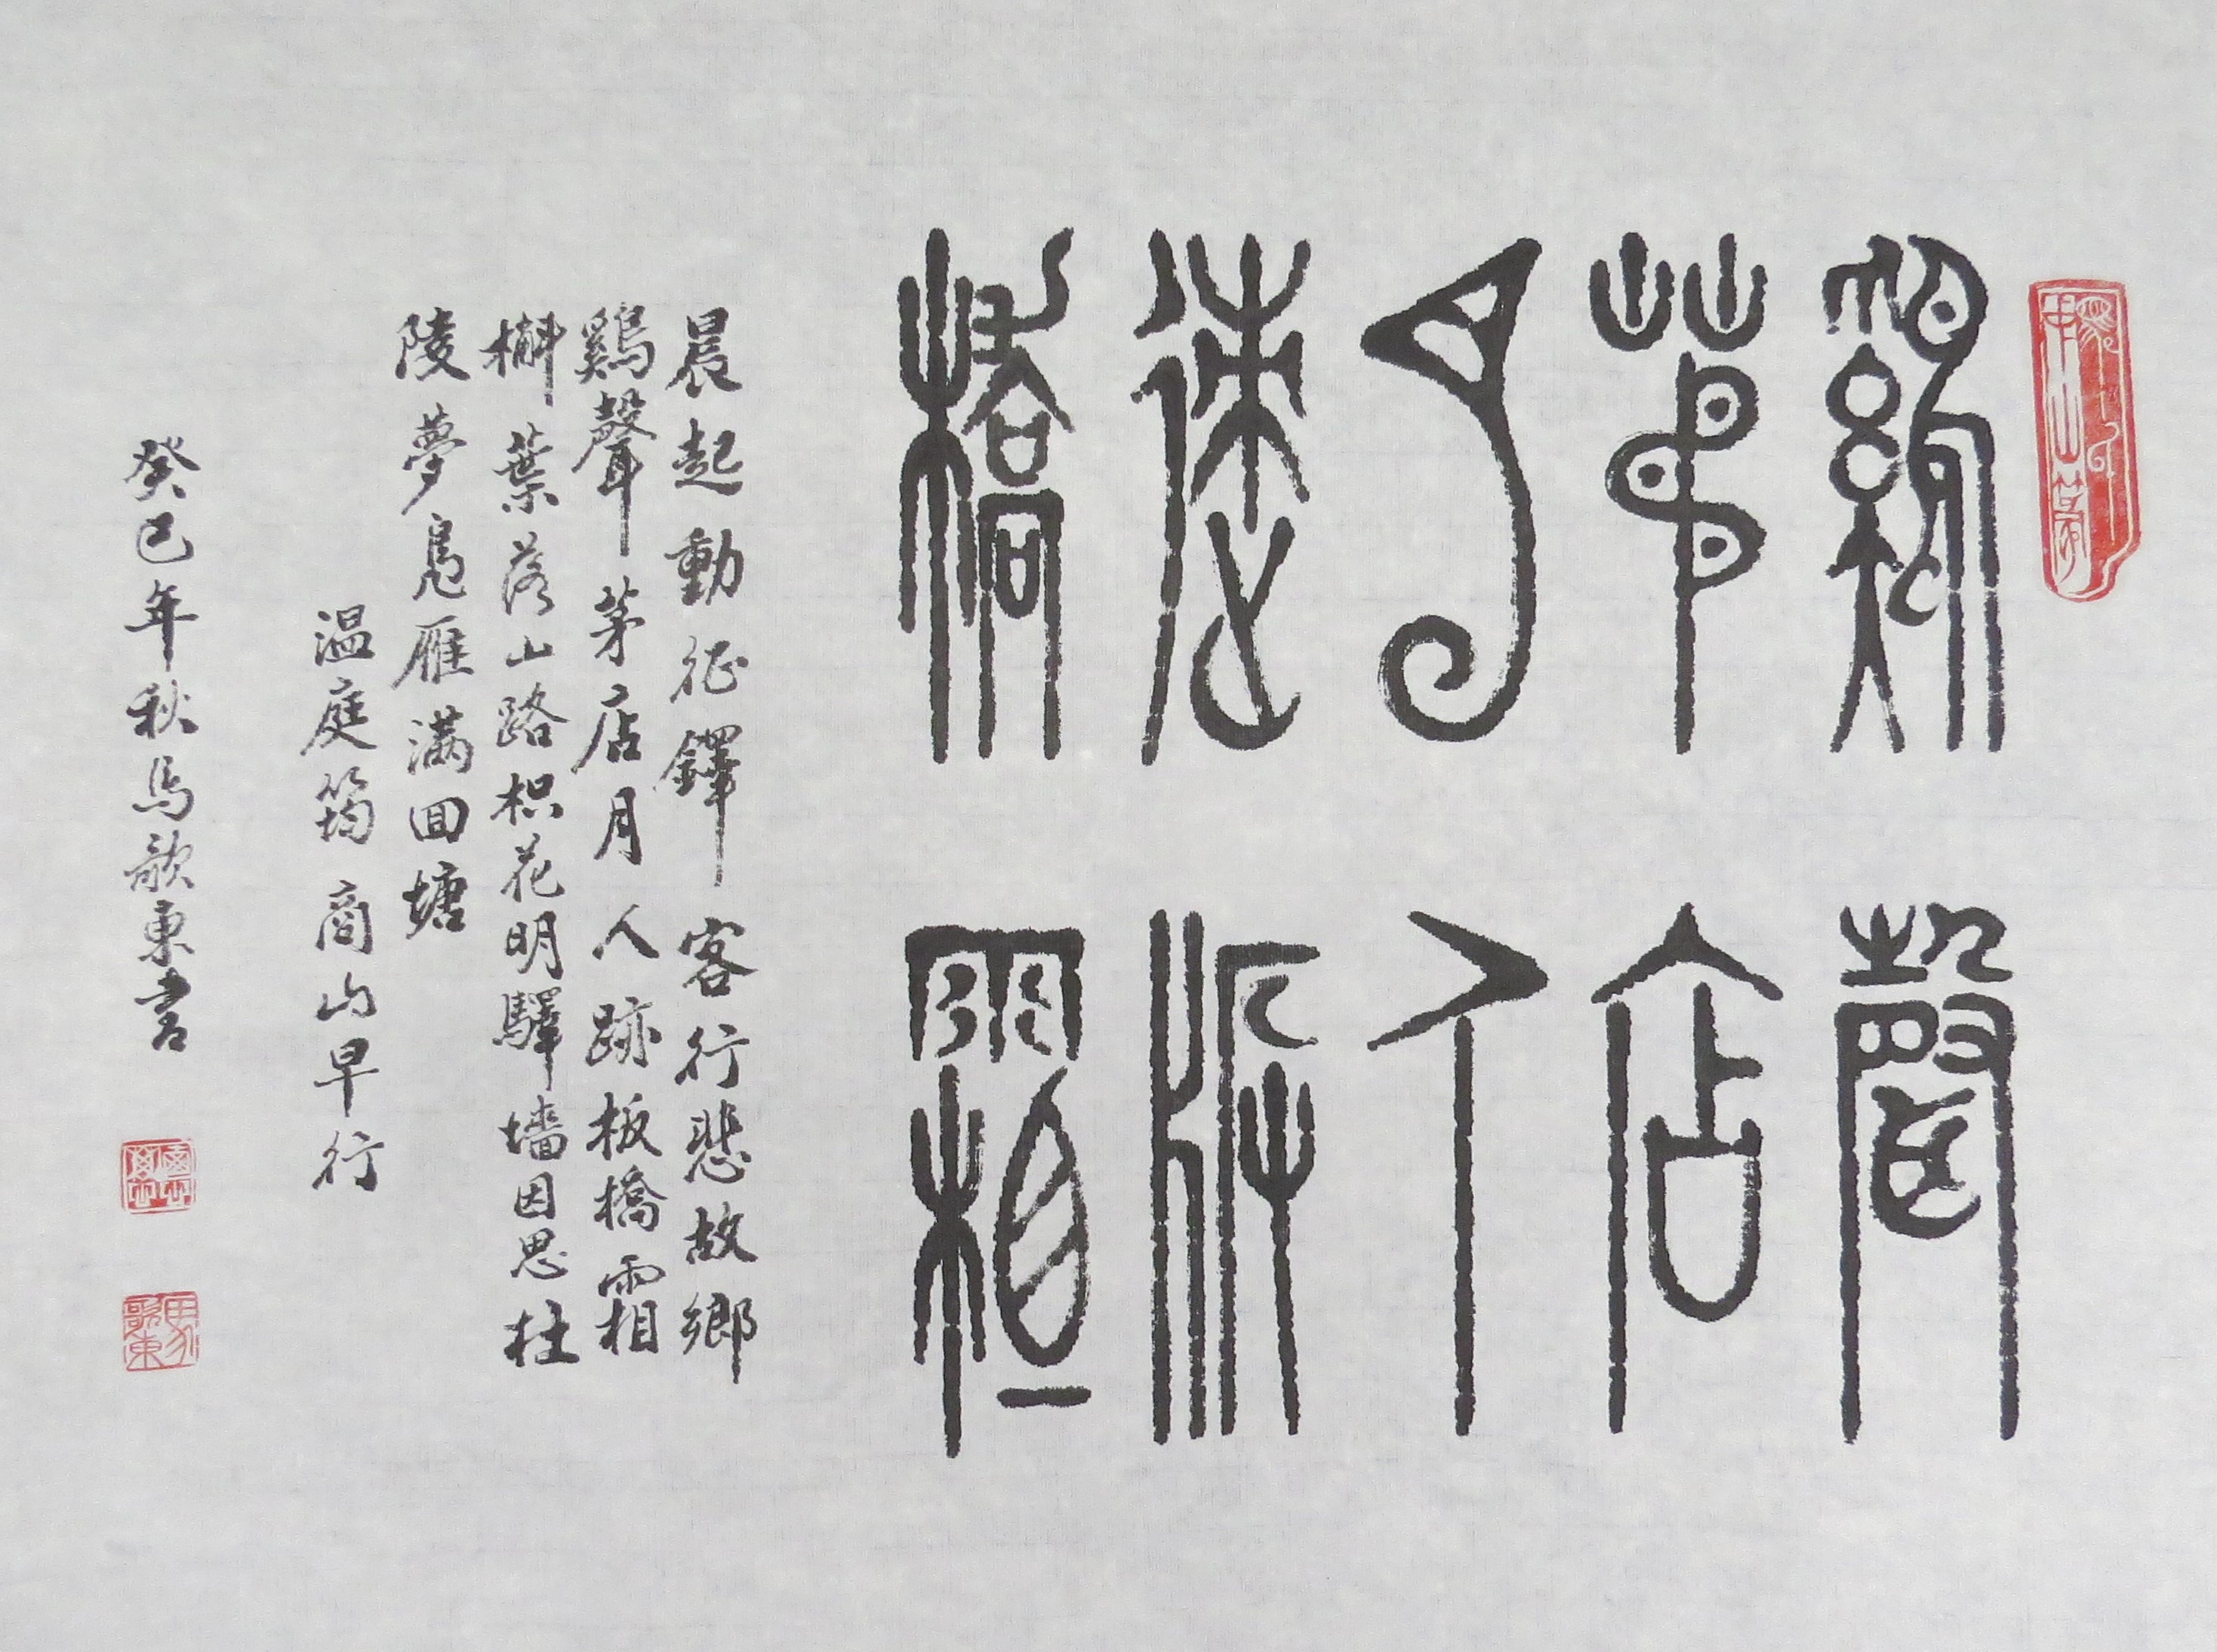 雞聲
茅店
月人
迹板
橋霜
晨起動征鐸客行悲故鄉
鷄聲茅店月人跡板橋霜相
槲葉落山路枳花明驛墻因思杜
陵夢鳧雁满回塘
温庭筠商山早行
癸巳年秋馬歌東書